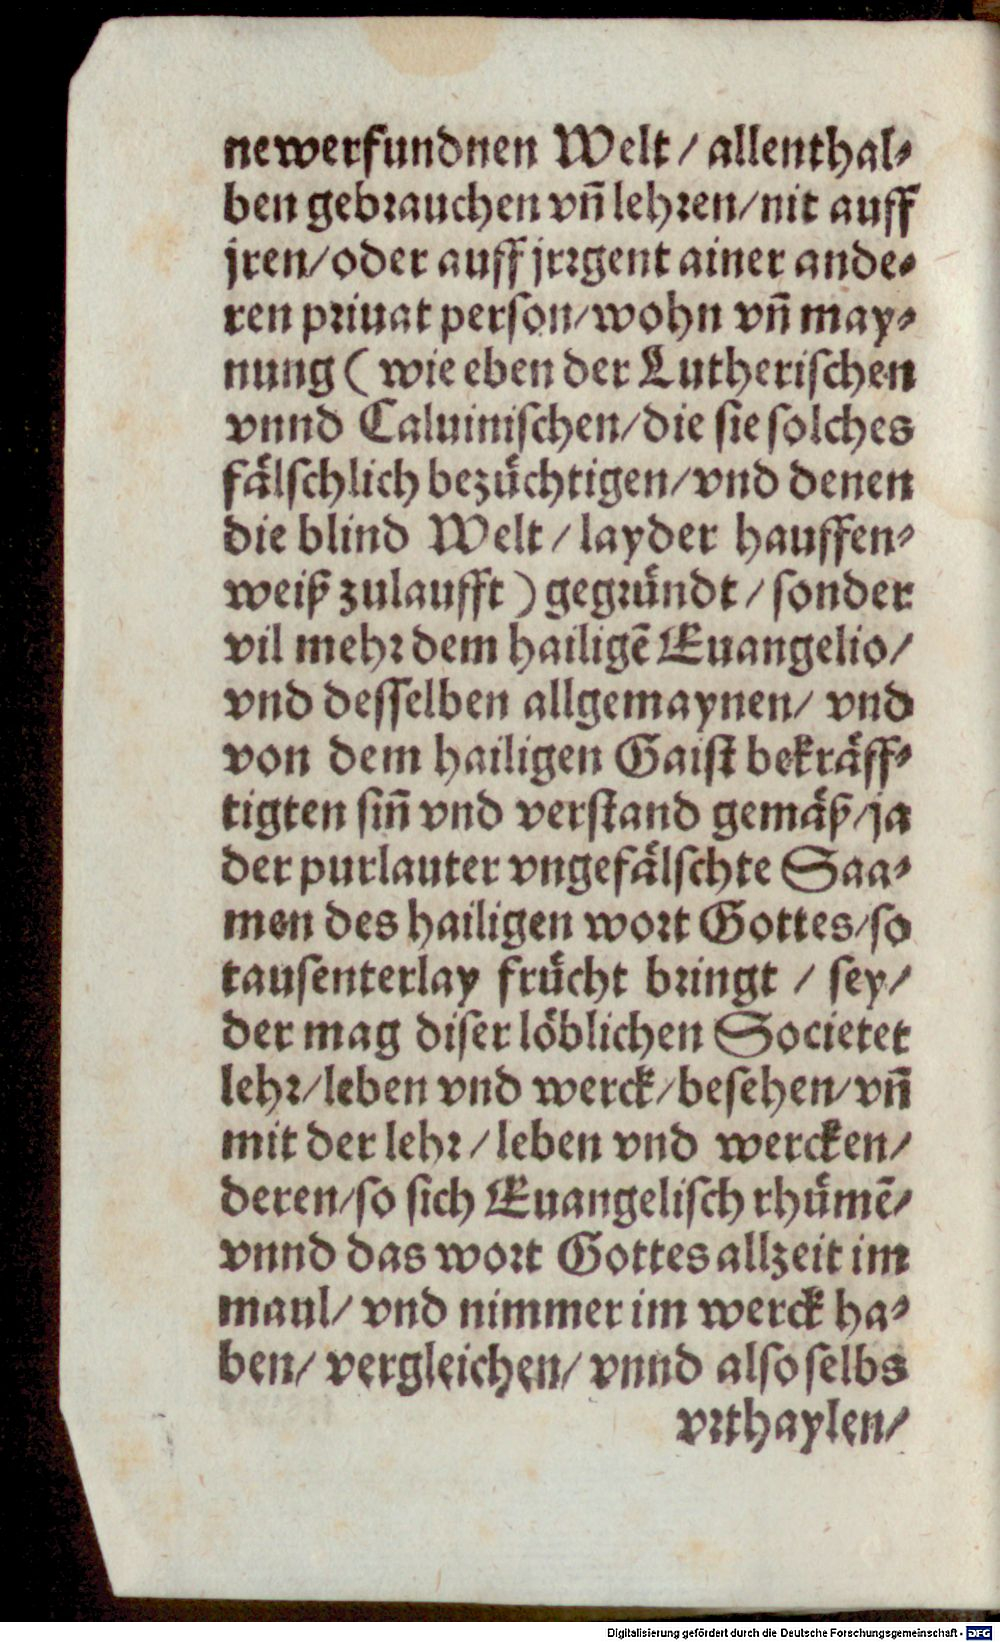 newerfundnen Welt / allenthal⸗
ben gebrauchen vñ lehren/nit auff
jren/oder auff jrrgent ainer ande⸗
ren priuat person/wohn vñ may⸗
nung ( wie eben der Lutherischen
vnnd Caluinischen/die sie solches
fälschlich bezüchtigen/vnd denen
die blind Welt / layder hauffen⸗
weiß zulaufft ) gegründt / sonder
vil mehr dem hailigē Euangelio/
vnd desselben allgemaynen/ vnd
von dem hailigen Gaist bekräff⸗
tigten siñ vnd verstand gemäß/ja
der purlauter vngefälschte Saa⸗
men des hailigen wort Gottes/so
tausenterlay frücht bringt / sey/
der mag diser löblichen Societet
lehr/leben vnd werck/besehen/vñ
mit der lehr / leben vnd wercken/
deren/so sich Euangelisch rhümē/
vnnd das wort Gottes allzeit im
maul/ vnd nimmer im werck ha⸗
ben/ vergleichen/ vnnd also selbs
vrthaylen/
Digitalisierung gefördert durch die Deutsche Forschungsgemeinschaft - DFG